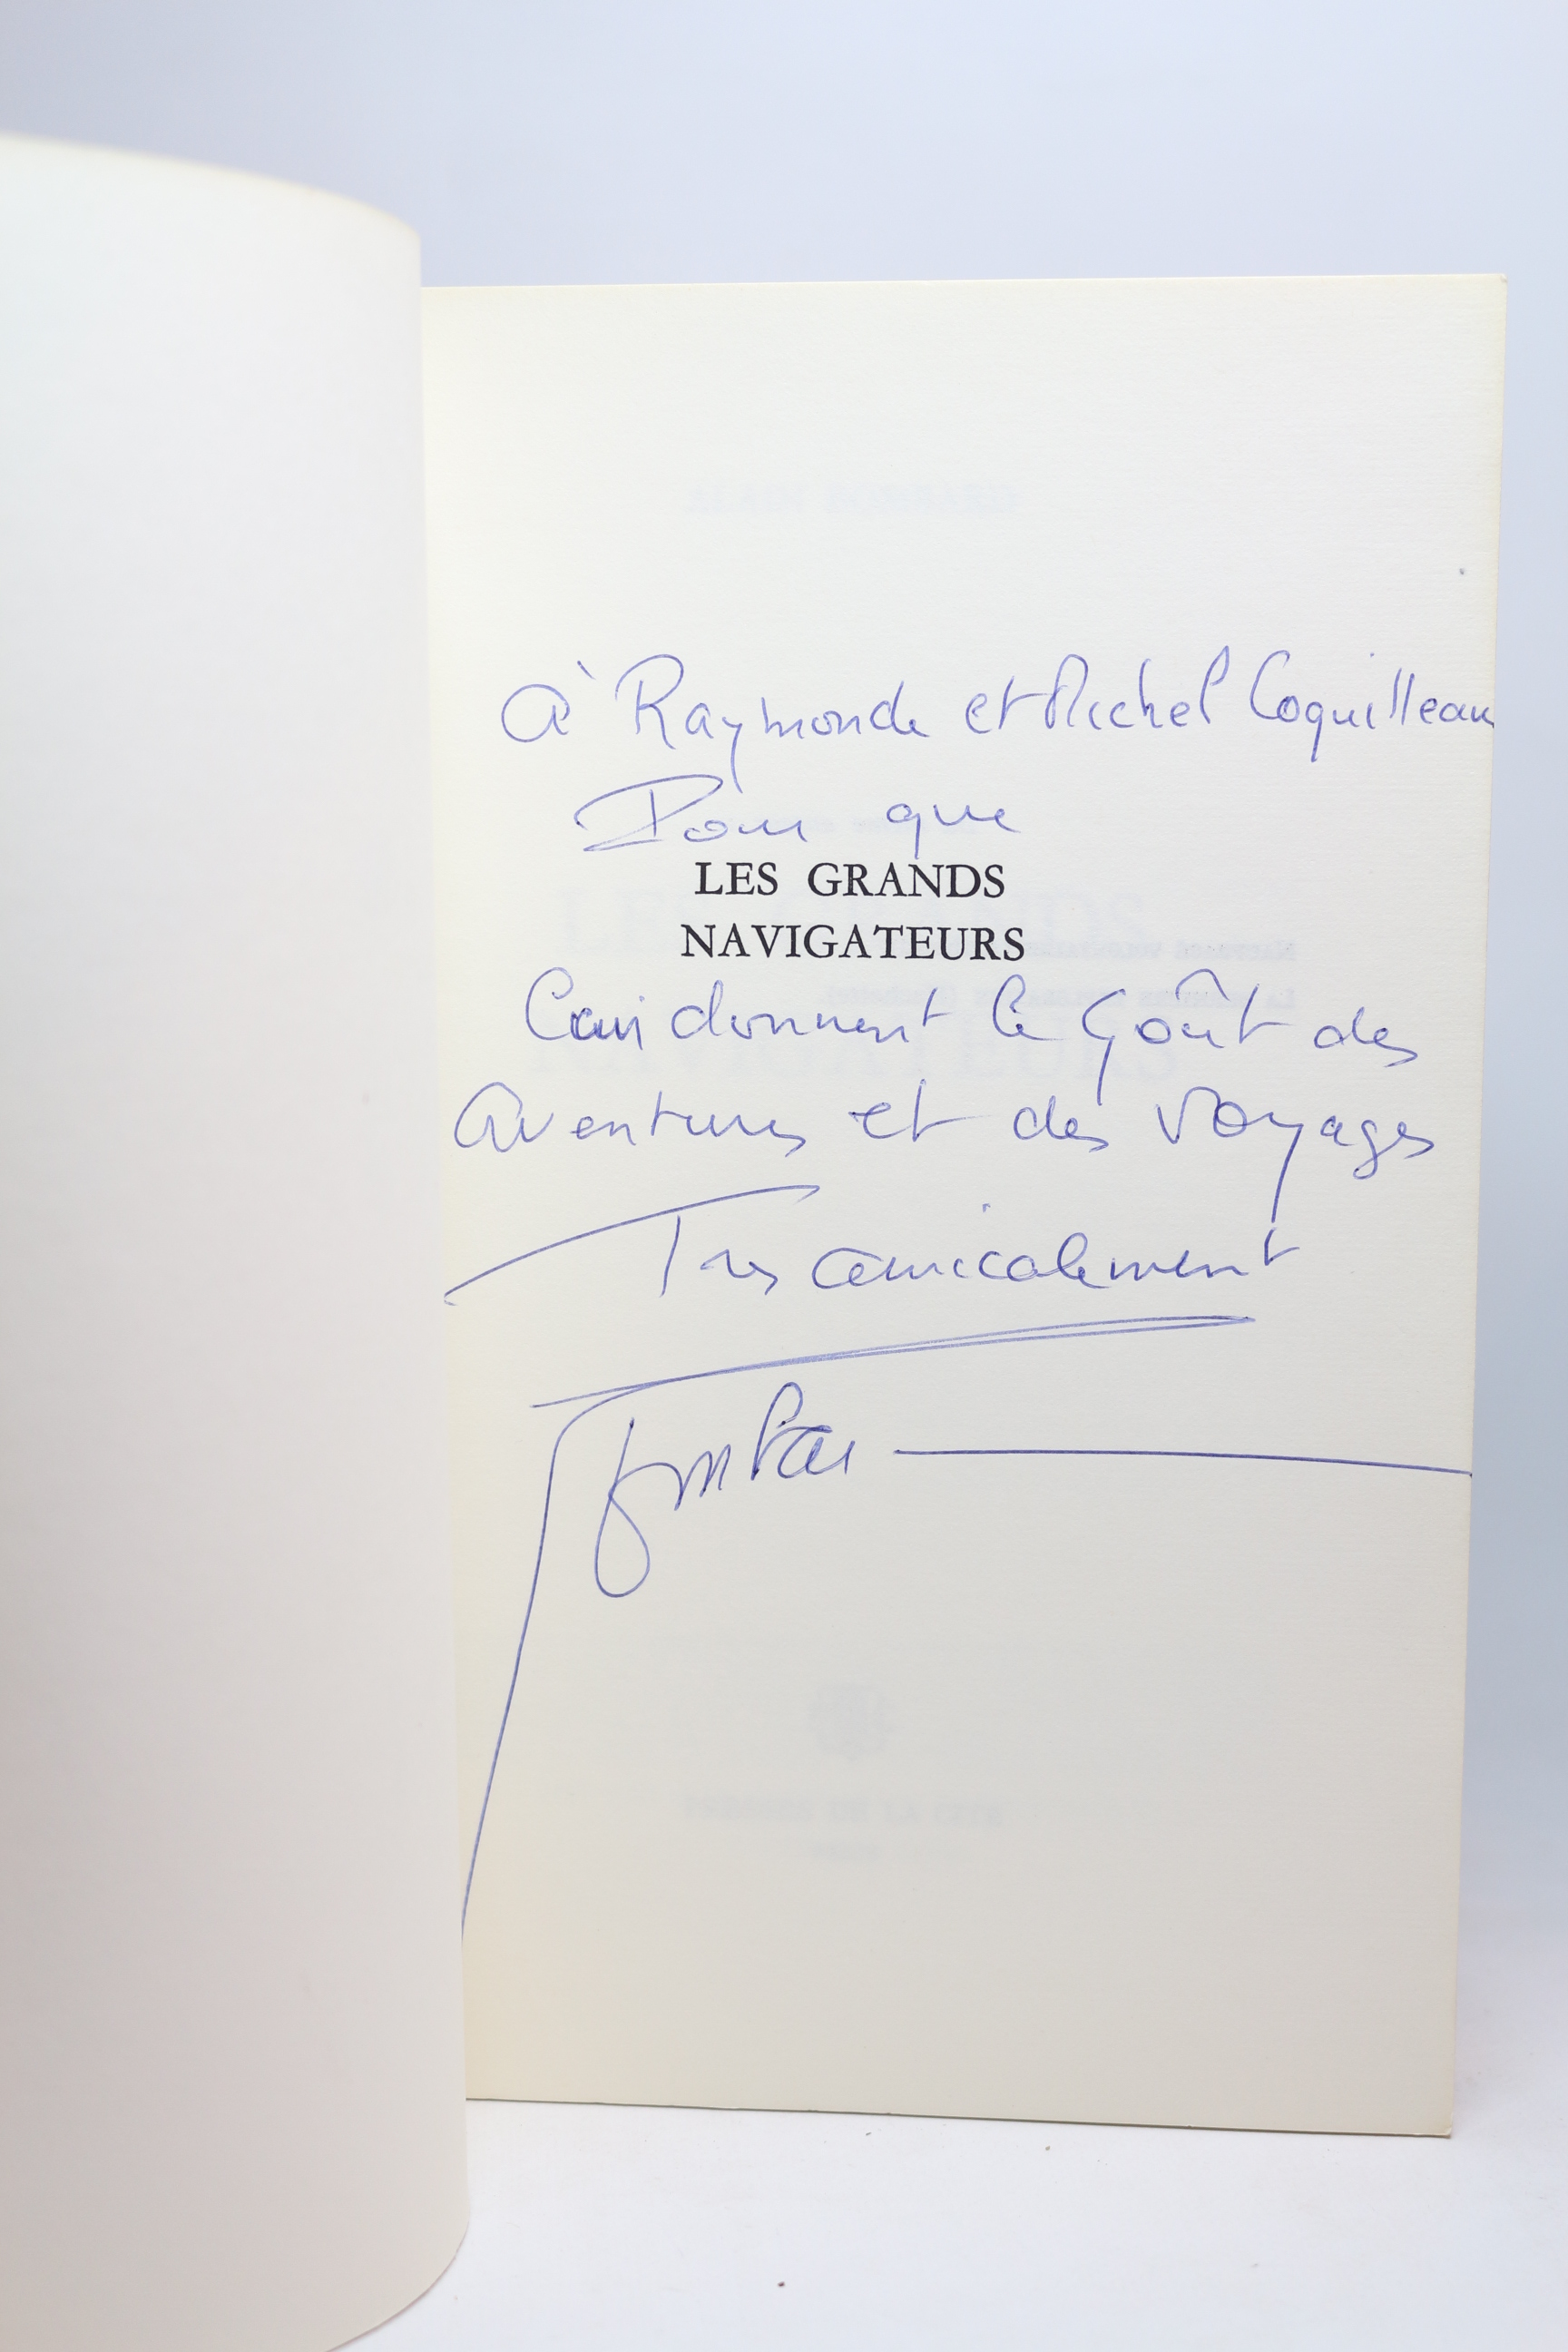 à Raymonde et Michel Coquilleau
Pour que
LES GRANDS
NAVIGATEURS
Leur donnent le goût des
Aventures et des Voyages
Très amicalement